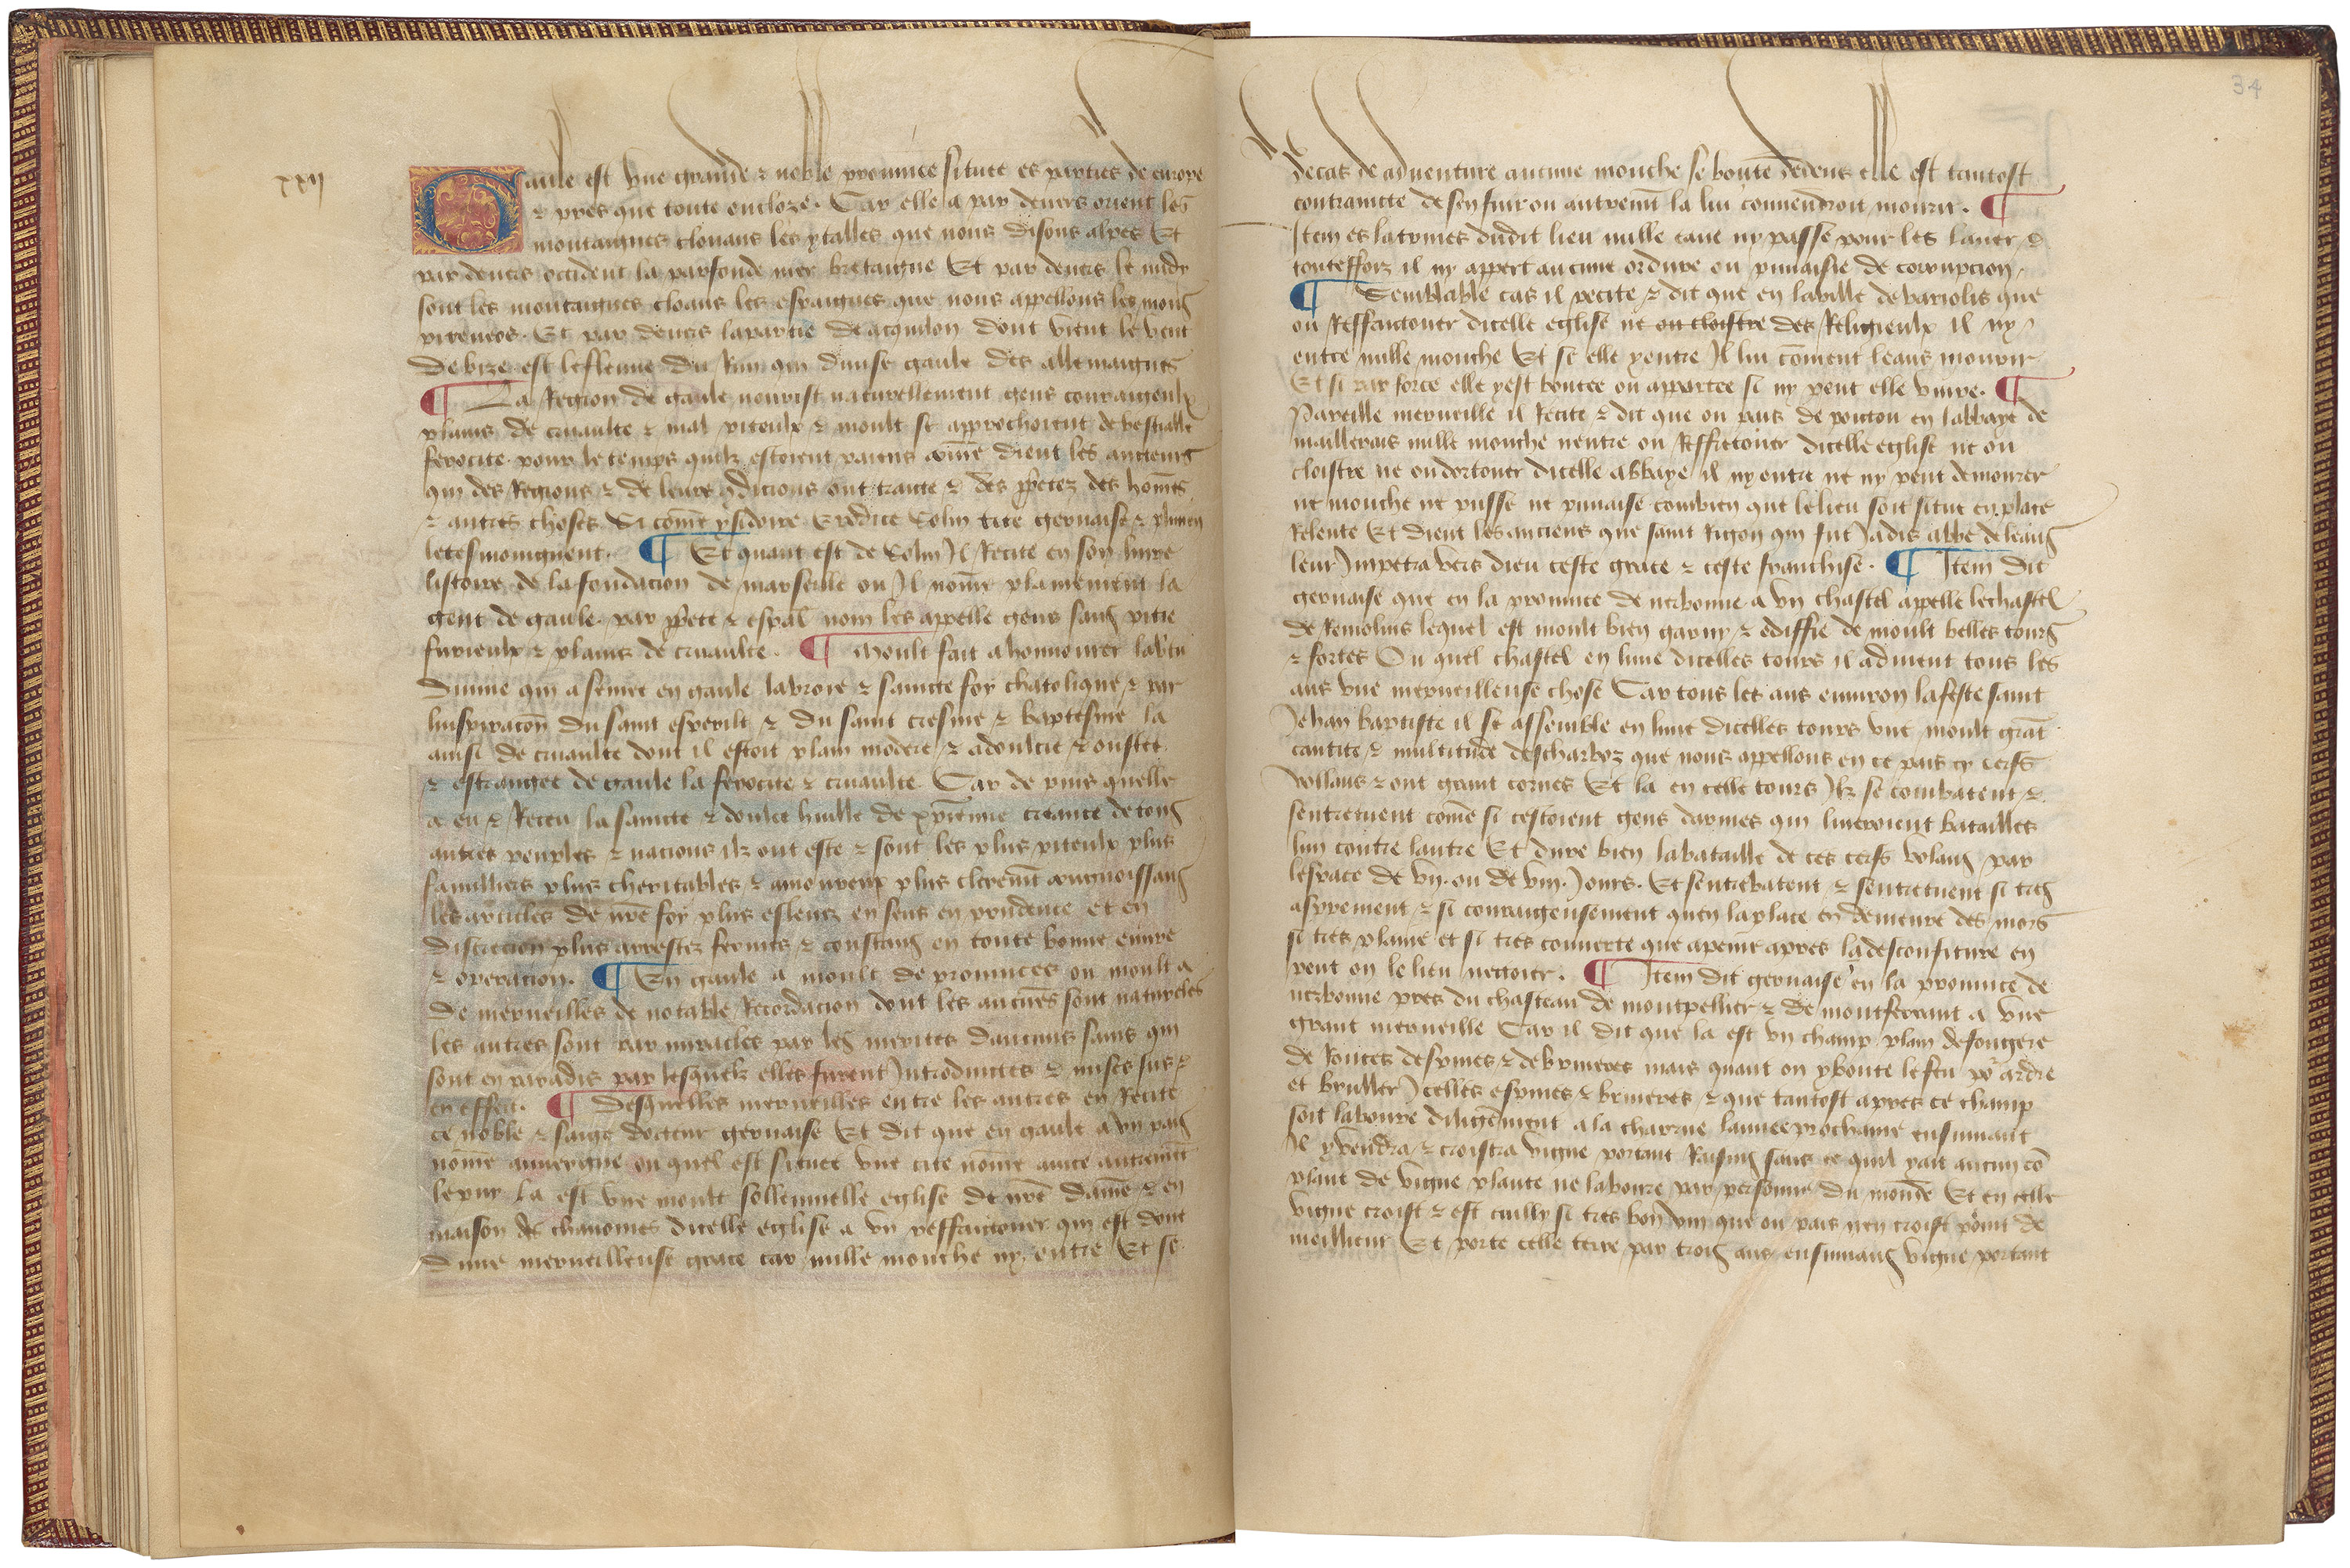 xxij
Gaule est vne grande ⁊ noble prouince situee es parties de europe
⁊ pres que toute encloze. Car elle a par deuers orient les
montaignes clouans les ytalles que nous disons alpes Et
par deuers occident la parfonde mer bretaigne Et par deuers le midy
sont les montaignes cloans les espaignes que nous appellons les mons
pireneos. Et par deuers la partie de acquilon dont vient le vent
de bize est le fleuue du Rin qui diuise gaule des allemaignes
¶ La Region de gaule nourist naturellement gens couraigeulx
plains de cruaulte ⁊ mal piteulx ⁊ moult se approchoient de bestialle
ferocite pour le temps quilz estoient paiens cõme dient les anciens
qui des Regions ⁊ de leurs 9dicions ont traicte ⁊ des ꝓp̃etez des hom̃es
⁊ autres choses Si cõme ysidoire Erodice Solin tite geruaise ⁊ plinien
le tesmoingnent. ¶ Et quant est de Solin Il Recite en son liure
listoire de la fondacion de marseille ou Il nom̃e plainement la
gent de gaule par ꝓp̃ete ⁊ esp̃al nom les appelle gens sans pitie
furieulx ⁊ plains de cruaulte. ¶ Moult fait a honnourer la v̾tu
diuine qui a semee en gaule la vroye ⁊ saincte foy chatolique ⁊ par
linspiracõn du saint esperilt ⁊ du saint cresme ⁊ baptesme la
ainsi de cruaulte dont il estoit plain modere ⁊ adoulcie ⁊ oustee
⁊ estrangee de gaule la ferocite ⁊ cruaulte Car de puis quelle
a eu ⁊ Receu la saincte ⁊ doulce huille de xp̃ienne creance de tous
autres peuples ⁊ nacions ilz ont este ⁊ sont les plus piteulx plus
familliers plus cheritables ⁊ amoureux plus cleremẽt congnoissans
les articles de nr̃e foy plus esleuz en sens en prudence et en
discrecion plus arrestez fermes ⁊ constans en toute bonne euure
⁊ operacion. ¶ En gaule a moult de prouinces ou moult a
de merueilles de notable Recordacion dont les aucũes sont natureles
les autres sont par miracles par les merites daucuns sains qui
sont en paradis par lesquelz elles furent Introduictes ⁊ mises sus ⁊
en effect. ¶ Desquelles merueilles entre les autres en Recite
ce noble ⁊ saige docteur geruaise Et dit que en gaule a vn pais
nom̃e auuergne ou quel est situee vne cite nom̃e anice autremẽt
le puy la est vne moult sollennelle eglise de nr̃e dame ⁊ en
maison de chanoines dicelle eglise a vn reffaictouer qui est doue
dune merueilleuse grace car nulle mouche ny entre Et se
34
de cas de aduenture aucune mouche se boute dedens elle est tantost
contraincte de sen fuir ou autremẽt la lui conuendroit mourir. ¶
Item es latrines dudit lieu nulle eaue ny passe pour les lauer ⁊
touteffoiz il ny appert aucune ordure ou punaisie de corrupcion
¶ Semblable cas il recite ⁊ dit que en la ville de bariolis que
ou Reffaictouer dicelle eglise ne ou cloistre des Religieulx il ny
entre nulle mouche Et se elle y entre Il lui cõuient leans mourir
Et si par force elle y est boutee ou apportee si ny peut elle viure. ¶
Pareille merueille il Recite ⁊ dit que ou pais de poictou en labbaye de
maillerais nulle mouche nentre ou Reffretouer dicelle eglise ne ou
cloistre ne ou dortouer dicelle abbaye il ny entre ne ny peut demourer
ne mouche ne pusse ne punaise combien que le lieu soit situe en place
Relente Et dient les anciens que saint Rigon qui fut Jadis abbe de leans
leur Impetra vers dieu ceste grace ⁊ ceste franchise. ¶ Item dit
geruaise que en la prouince de nerbonne a vn chastel appelle le chastel
de Remolins lequel est moult bien garny ⁊ ediffie de moult belles tours
⁊ fortes Ou quel chastel en lune dicelles tours il aduient tous les
ans vne merueilleuse chose Car tous les ans enuiron la feste saint
Jehan baptiste il se assemble en lune dicelles tours vne moult grãt
cantite ⁊ multitude descharboz que nous appellons en ce pais cy cerfs
vollans ⁊ ont grant cornes Et la en celle tours Ilz se combatent ⁊
sentretuent cõme si cestoient gens darmes qui liueroient batailles
lun contre lautre Et dure bien la bataille de ces cerfs volans par
lespace de vij. ou de viij. Jours. Et sentrebatent ⁊ sentretuent si tres
asprement ⁊ si couraigeusement quen la place en demeure des mors
si tres plaine et si tres couuerte que apeine apres la desconfiture en
peut on le lieu nectoier. ¶ Item dit geruaise en la prouince de
nerbonne pres du chasteau de montpellier ⁊ de montferrant a vne
grant merueille Car il dit que la est vn champ plain de fougere
de Ronces despines ⁊ de bruieres mais quant on y boute le feu po᷑ ardre
et bruller Icelles espines ⁊ bruieres ⁊ que tantost apres ce champ
soit laboure diligẽment a la charrue lannee prochaine ensuiuant
Il y vendra ⁊ croistra vigne portant Raisins sans ce quil y ait aucun cõ
plant de vigne plante ne laboure par personne du monde Et en celle
vigne croist ⁊ est cuilly si tres bon vin que ou pais nen croist point de
meilleur Et porte celle terre par trois ans ensuiuans vigne portant